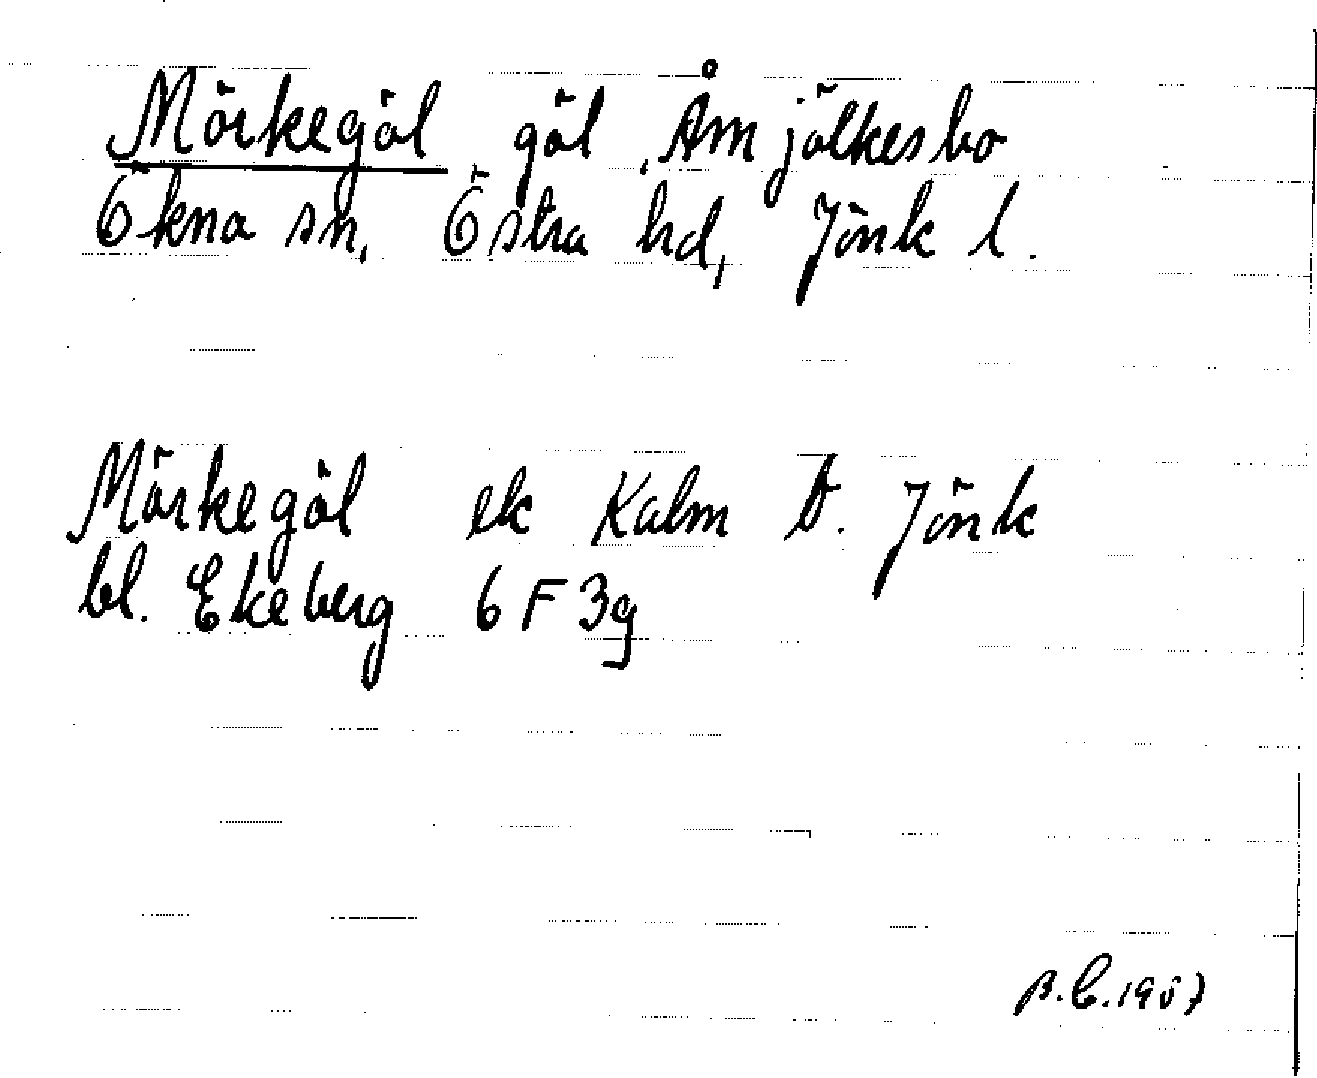 Mörkegöl göl, Åmjölkesbo
Ökna sn, Östra hd, Jönk l.
Mörkegöl ek Kalm o. Jönk
bl. Ekeberg 6F3g